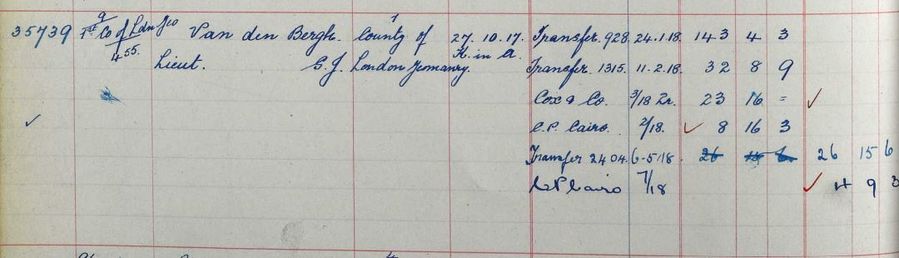 35739 1st Co of Ldn Yeo Van den Bergh. County of 27.10.17. Transfer. 928. 24.1.18. 143 4 3
9/455. Lieut. S.J. London Yeomanry. K. in A. Transfer. 1315. 11.2.18. 32 8 9
Cox & Co. 3/18 23 16 =
C.P. Cairo. 2/18. 8 16 3
Transfer 2404. 6.5.18. 26 15 6
Cairo 7/18 4 9 3